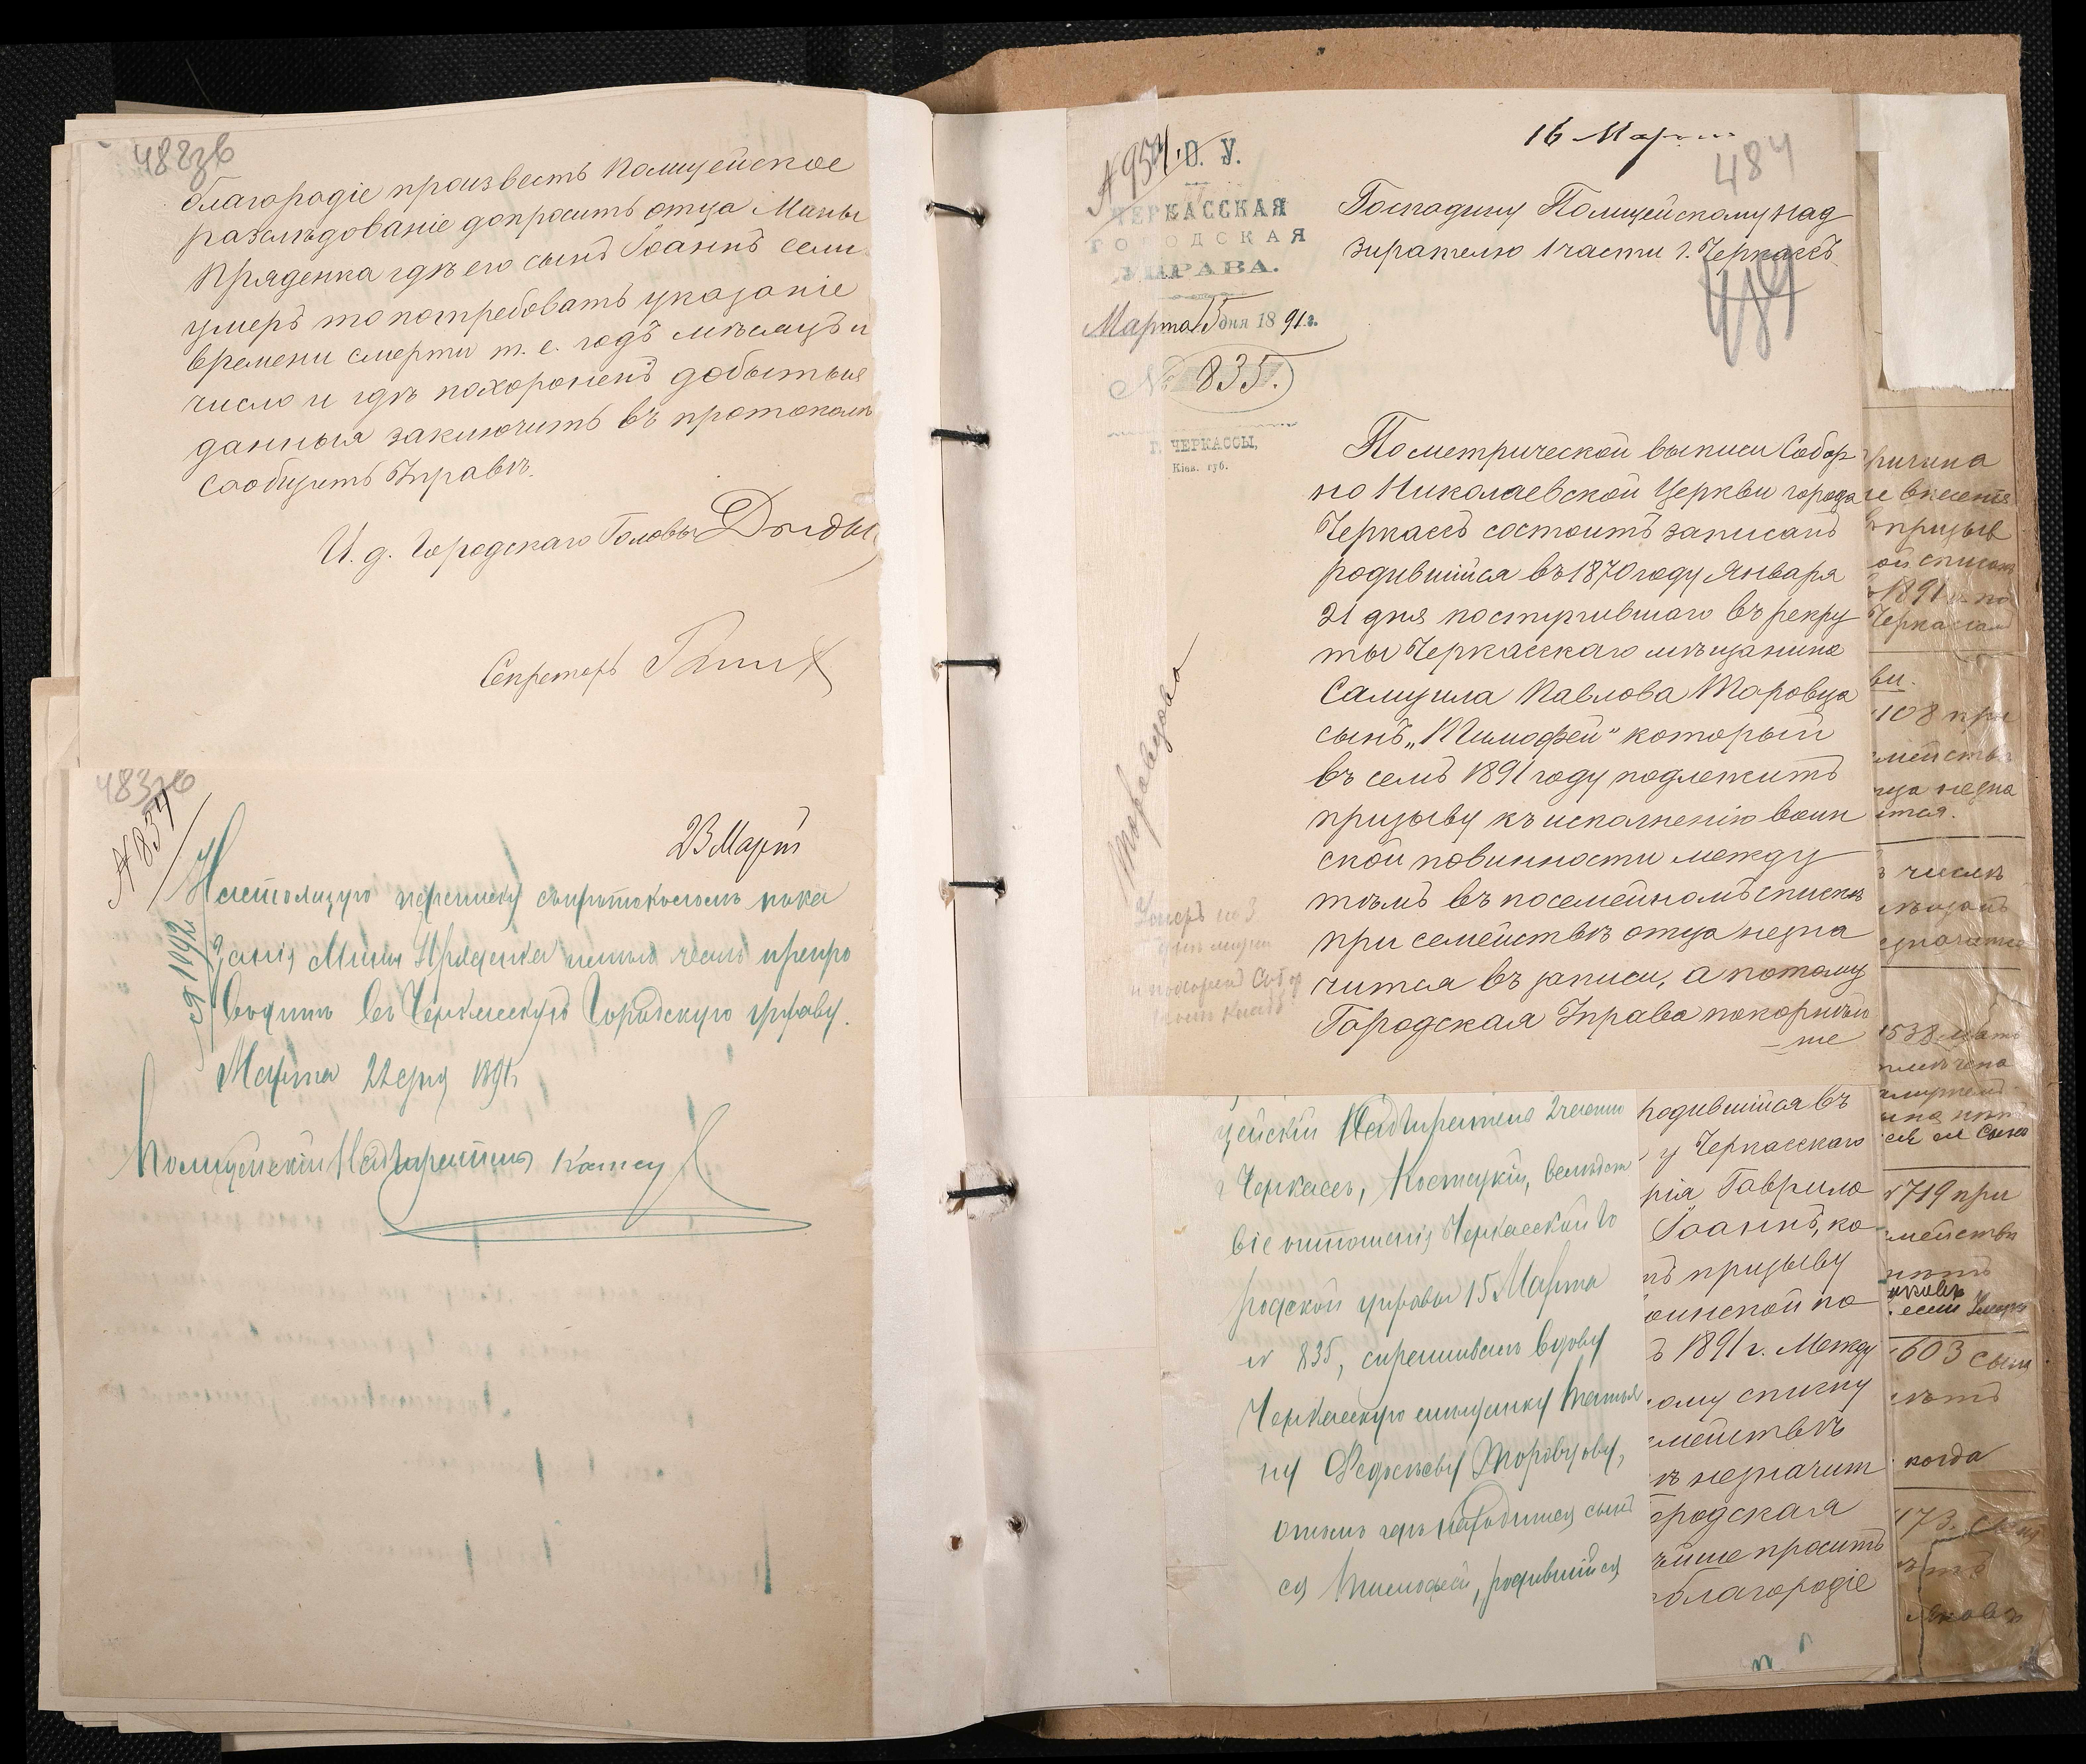 488зв
благородіе произвесть Полицейское
разслѣдованіе допросить отца Мины
Пряденка гдѣ его сынъ Іоаннъ если
умеръ то потребовать указаніе
времени смерти т. е. годъ мѣсяцъ и
число и гдѣ похороненъ добытыя
данныя заключить въ протоколъ
сообщить Управѣ.
И. д. Городскаго Головы Дыды
Секретарь
483зв
№ 837
23 Март
Настоящую переписку съ протоколомъ пока
занія Мины Пряденка имѣю честь препро
водить въ Черкасскую Городскую управу.
Марта 22 дня 1891 г.
№ 1492
Полицейскій Надзиратель
№ 954
О. У.
ЧЕРКАССКАЯ
ГОРОДСКАЯ
УПРАВА.
Марта 15 дня 1891 г.
№ 835.
Г. ЧЕРКАССЫ,
Кіев. губ.
16 Марта
484
Господину Полицейскому над
зирателю 1 части г. Черкассъ
489
По метрической выписи Собор
но Николаевской Церкви города
Черкассъ состоитъ записанъ
родившійся въ 1870 году Января
21 дня поступившаго въ рекру
ты Черкасскаго мѣщанина
Самуила Павлова Торовца
сынъ „Тимофей" который
въ семъ 1891 году подлежитъ
призыву къ исполненію воин
ской повинности между
тѣмъ въ посемейномъ спискѣ
при семействѣ отца незна
чится въ записи, а потому
Городская Управа покорнѣй
ше
Торовцова
Умеръ
цейскій Надзиратель 2 части
г Черкассъ, Костецкій, вслѣдст
віе отношенія Черкасской го
родской управы 15 Марта
№ 835, спрашивалъ вдову
Черкасскую мѣщанку Татья
ну Федосѣеву Торовцову,
о томъ гдѣ находится сынъ
ея Тимофей, родившійся
родившійся въ
у Черкасскаго
рія Гаврило
Іоаннъ, ко
ъ призыву
оинской по
ъ 1891 г. Между
ому списку
емействѣ
ѣ незначит
ородская
ѣйше проситъ
облагородіе
ричина
е внесенія
призыв
ой списокъ
1891 г. по
Черкассам
ви.
108 при
мействѣ
ца незна
ится.
ъ числѣ
значится
1538 мать
719 при
мействѣ
603 сына
когда
173. сына